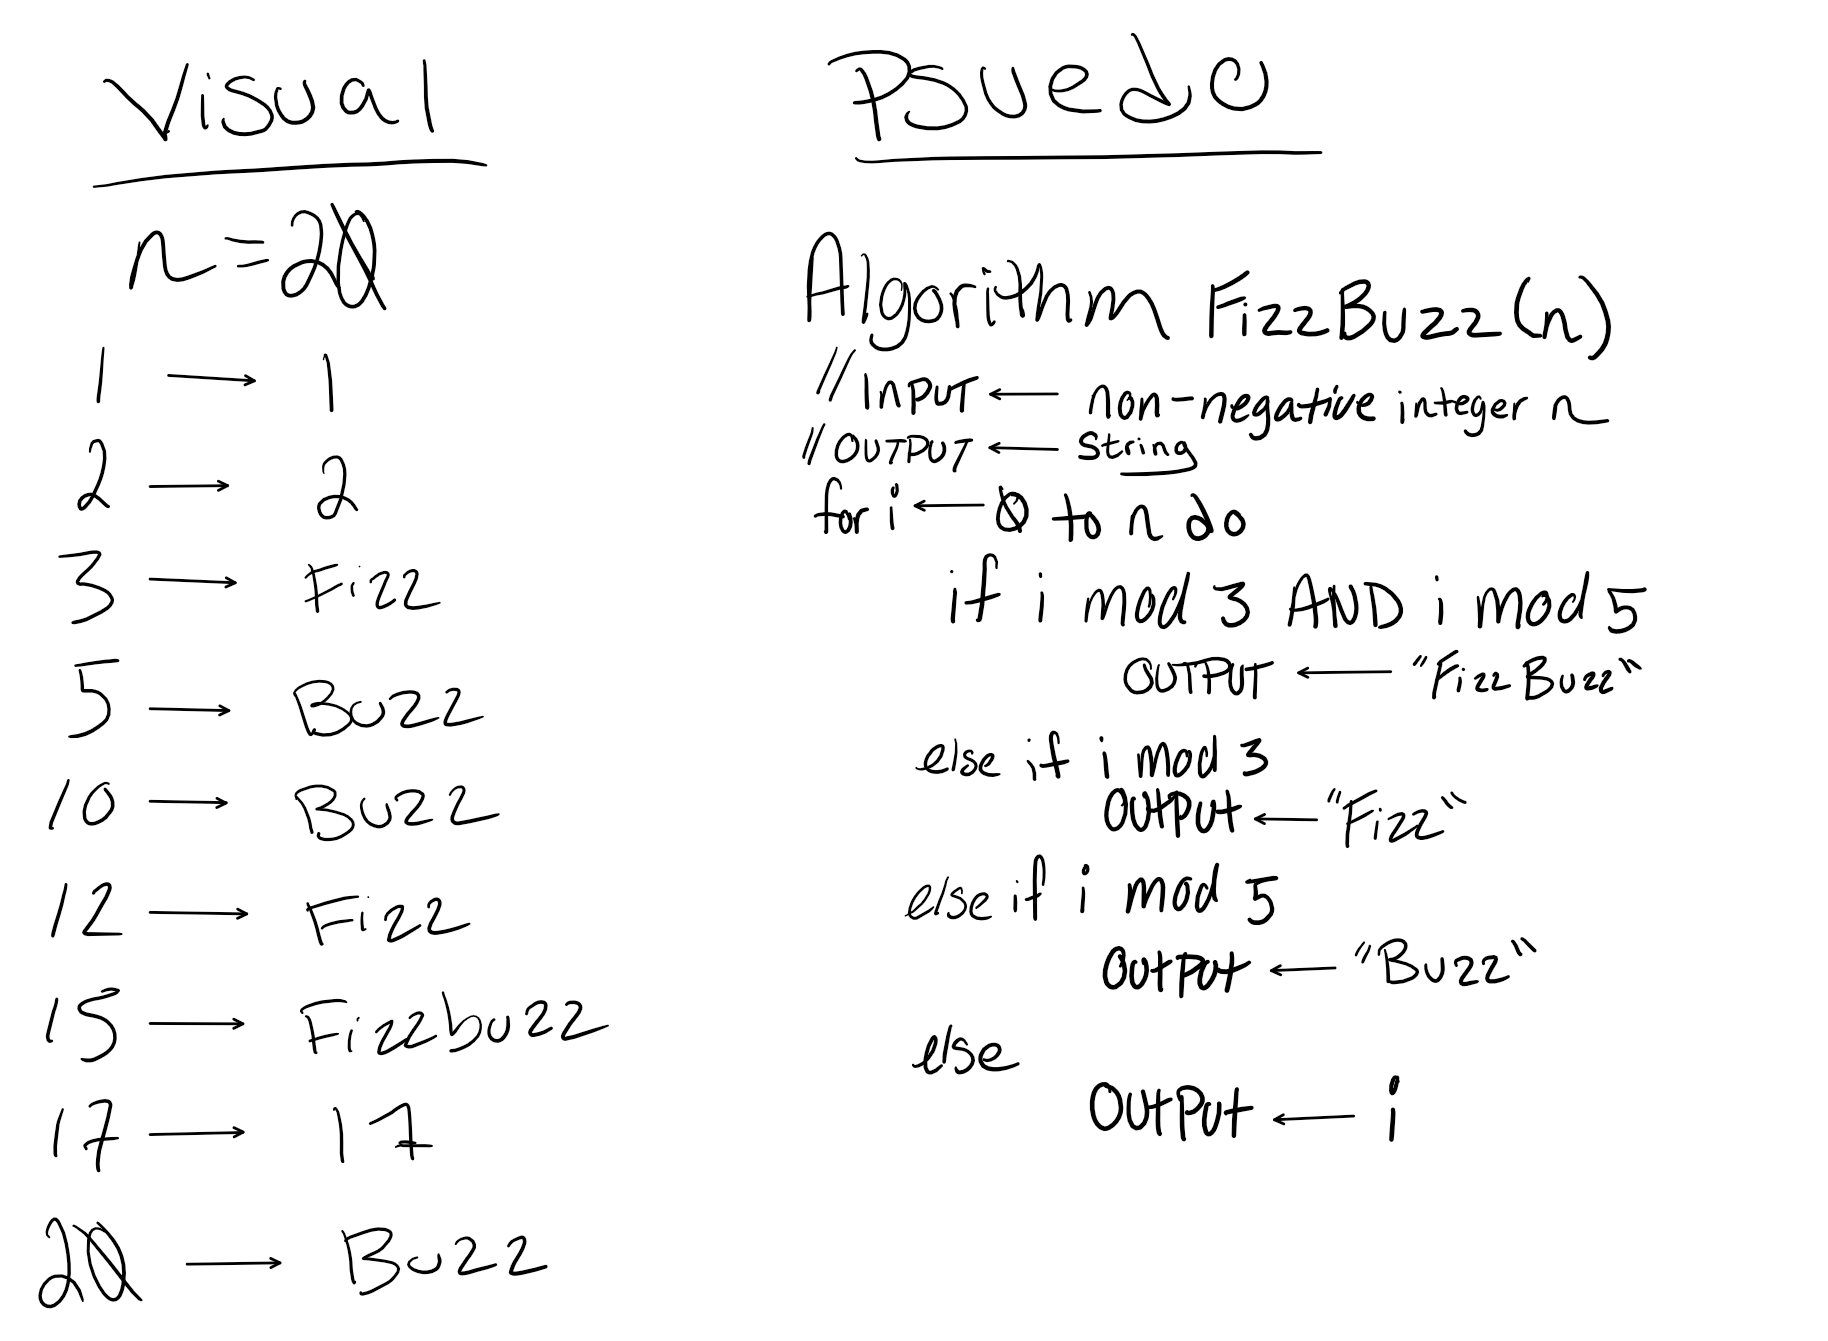 Visual
n = 20
1 → 1
2 → 2
3 → Fizz
5 → Buzz
10 → Buzz
12 → Fizz
15 → Fizzbuzz
17 → 17
20 → Buzz
Psuedo
Algorithm FizzBuzz(n)
// INPUT ← non-negative integer n
// OUTPUT ← String
for i ← 0 to n do
if i mod 3 AND i mod 5
OUTPUT ← "FizzBuzz"
else if i mod 3
OUtPUt ← "Fizz"
else if i mod 5
OutPut ← "Buzz"
else
OutPut ← i